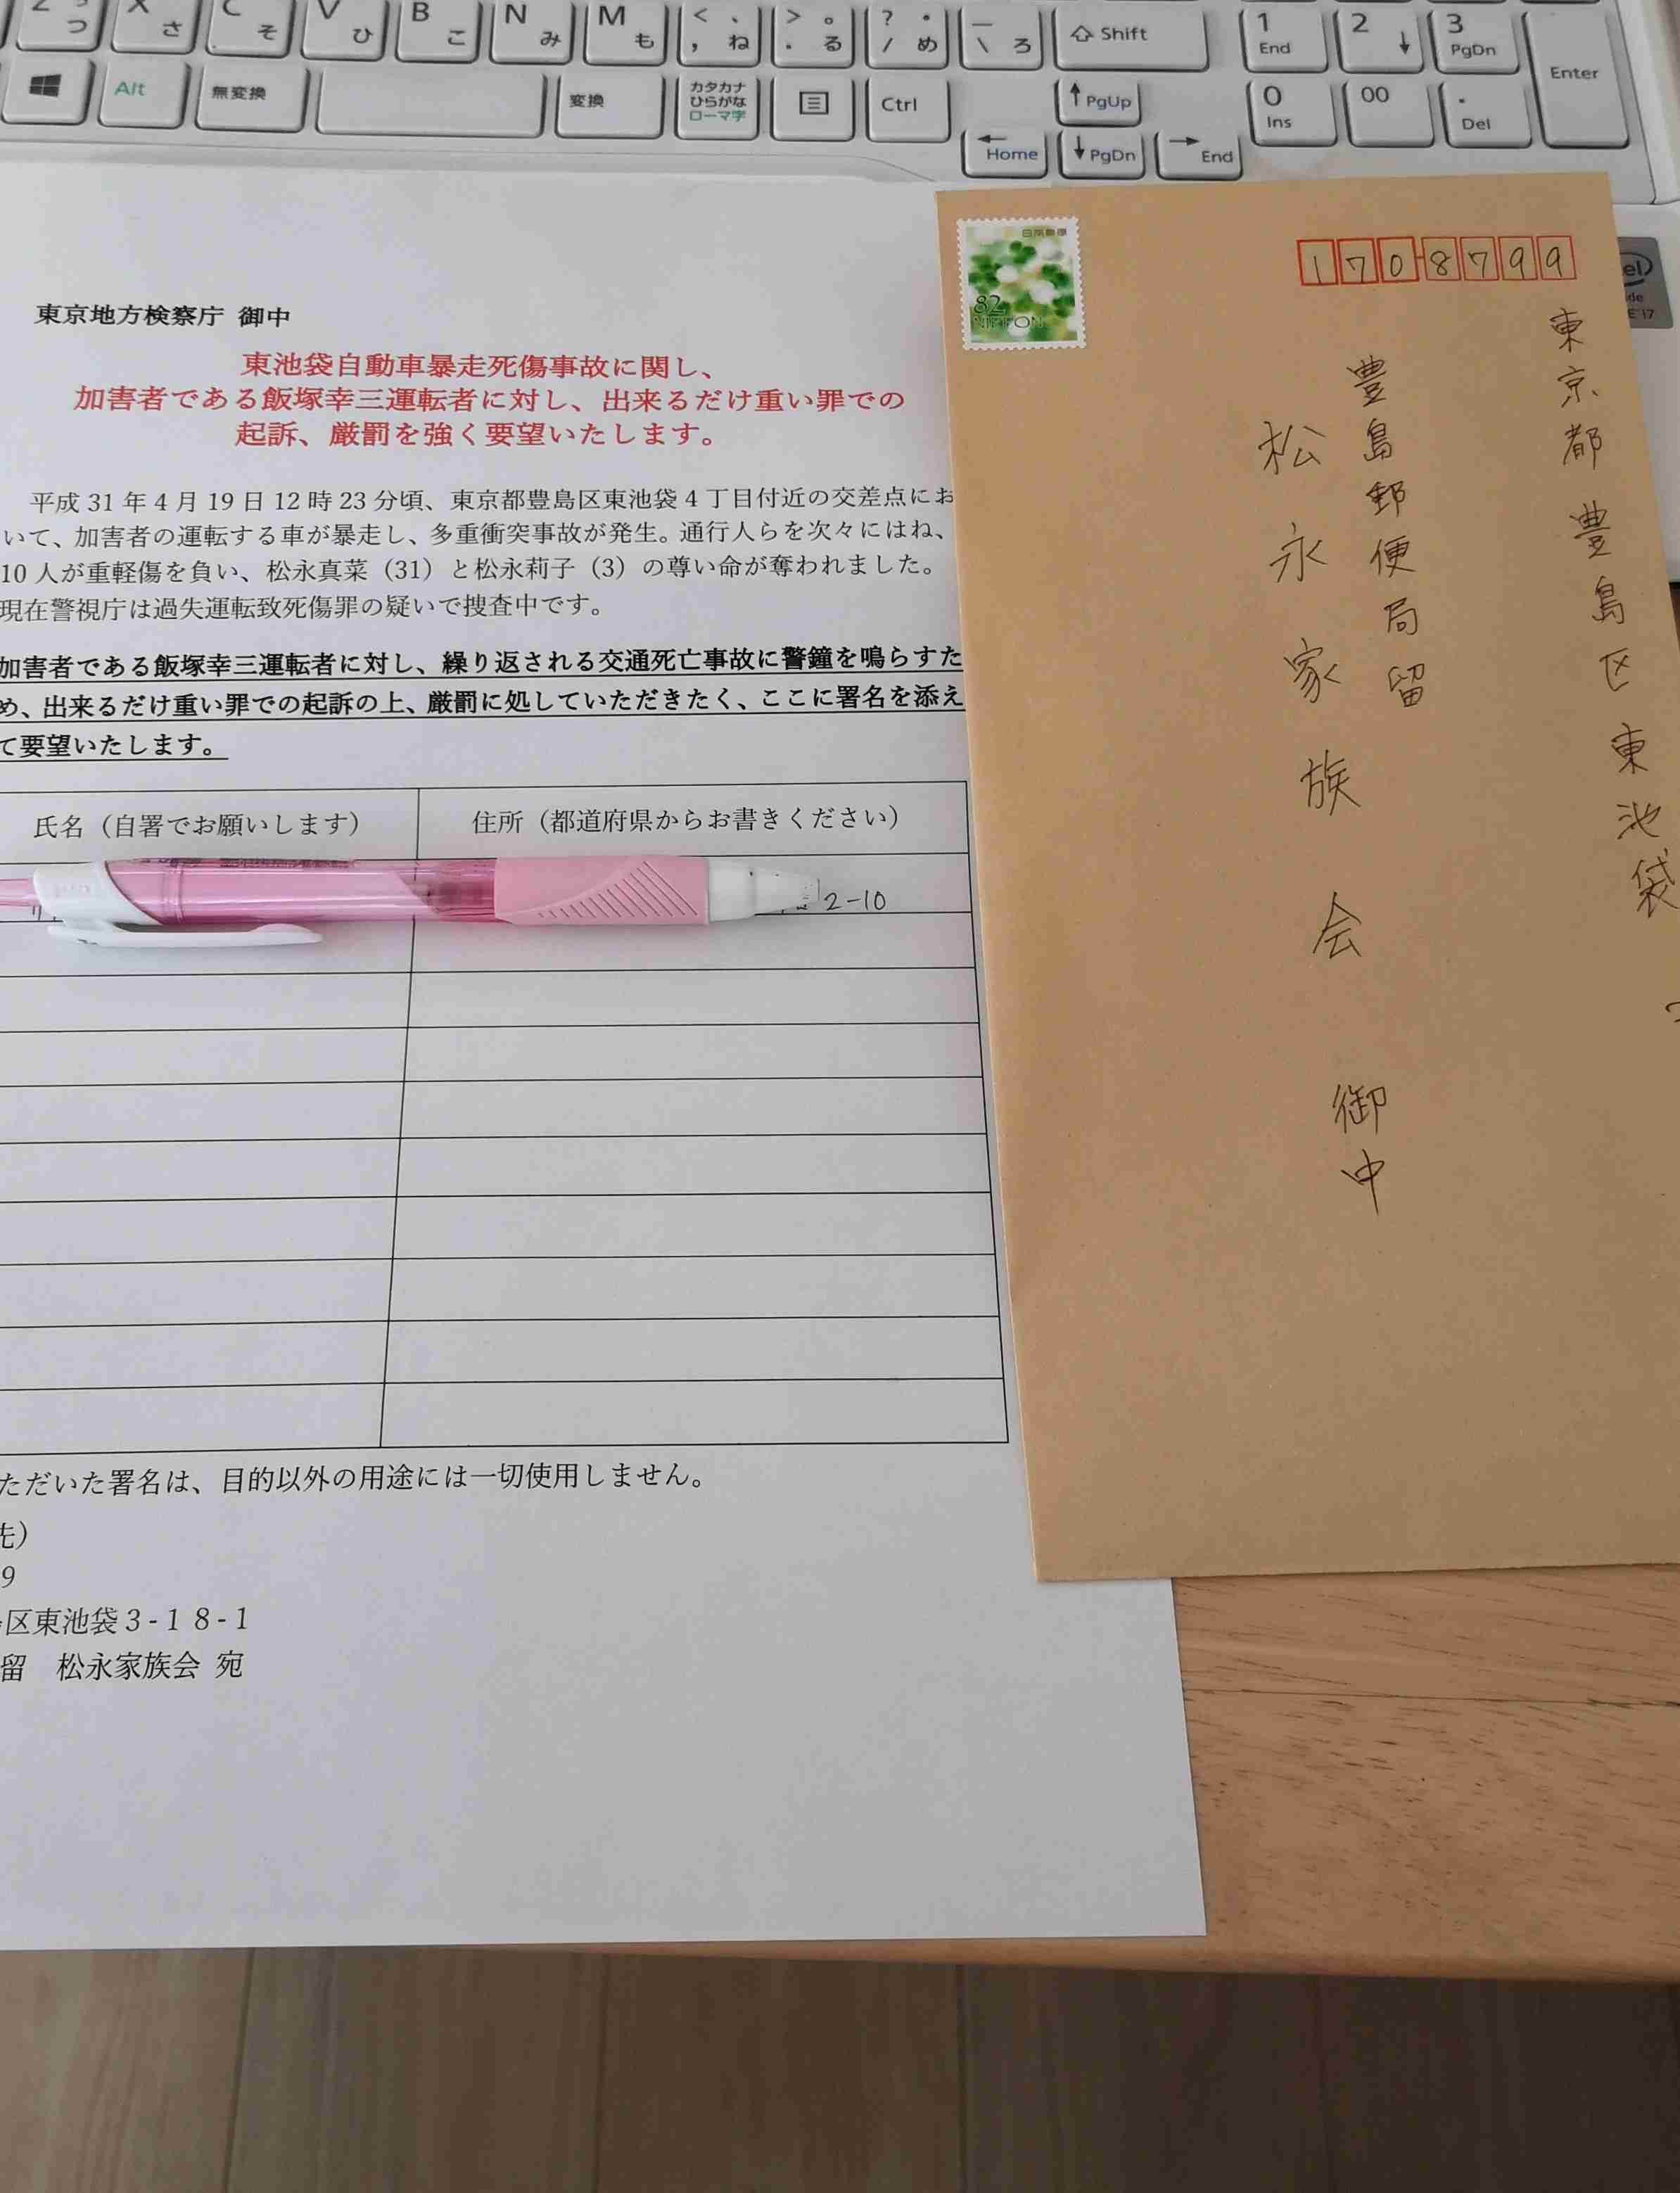 Z つ
X さ
C そ
V ひ
B こ
N み
M も
< 、 , ね
> 。 . る
? ・ / め
_ \ ろ
Shift
1 End
2
3 PgDn
Enter
Alt
無変換
変換
カタカナ
ひらがな
ローマ字
Ctrl
PgUp
0 Ins
00
. Del
Home
PgDn
End
東京地方検察庁 御中
東池袋自動車暴走死傷事故に関し、
加害者である飯塚幸三運転者に対し、出来るだけ重い罪での
起訴、厳罰を強く要望いたします。
平成 31 年 4 月 19 日 12 時 23 分頃、東京都豊島区東池袋 4 丁目付近の交差点にお
いて、加害者の運転する車が暴走し、多重衝突事故が発生。通行人らを次々にはね、
10 人が重軽傷を負い、松永真菜（31）と松永莉子（3）の尊い命が奪われました。
現在警視庁は過失運転致死傷罪の疑いで捜査中です。
加害者である飯塚幸三運転者に対し、繰り返される交通死亡事故に警鐘を鳴らすた
め、出来るだけ重い罪での起訴の上、厳罰に処していただきたく、ここに署名を添え
て要望いたします。
氏名（自署でお願いします）
住所（都道府県からお書きください）
2-10
ただいた署名は、目的以外の用途には一切使用しません。
先）
9
区東池袋３-１８-１
留　松永家族会 宛
日本郵便
82
NIPPON
1708799
東京都豊島区東池袋
豊島郵便局留
松永家族会 御中